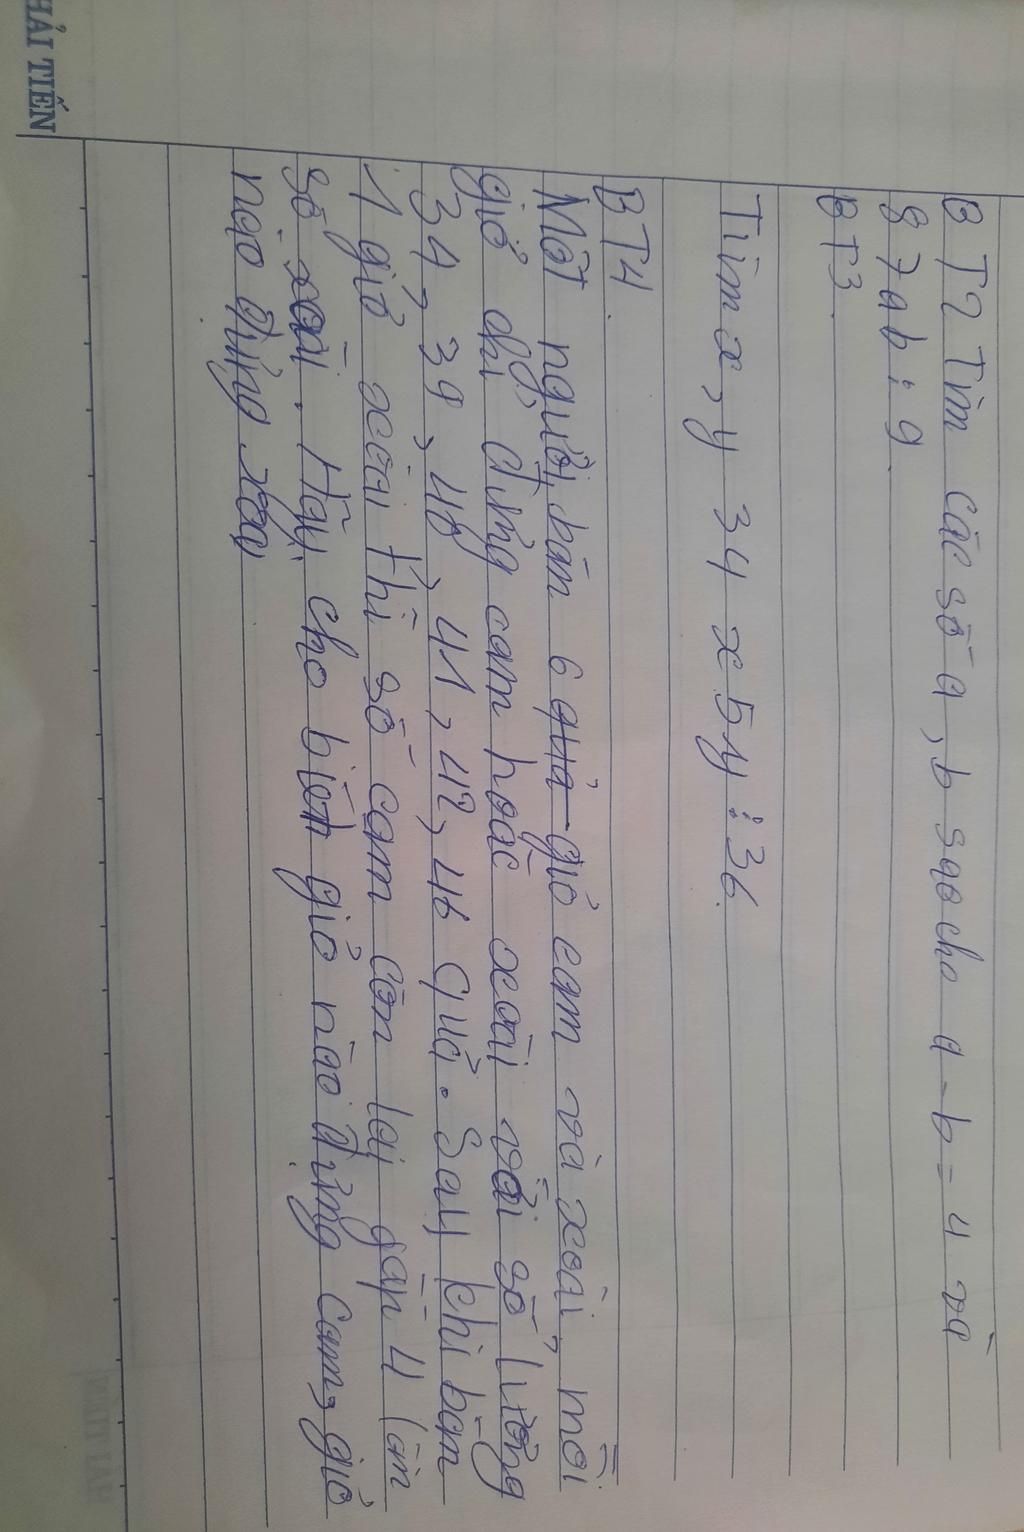 BT2 Tìm các số a, b sao cho a - b = 4 và
87ab ⋮ 9
BT3.
Tìm x, y 34 x 5 y ⋮ 36.
BT4.
Một người bán 6 giỏ cam và xoài, mỗi
giỏ chỉ đựng cam hoặc xoài với số lượng
34, 39, 40, 41, 42, 46 quả. Sau khi bán
1 giỏ xoài thì số cam còn lại gấp 4 lần
số xoài. Hãy cho biết giỏ nào đựng cam, giỏ
nào đựng xoài
HẢI TIẾN